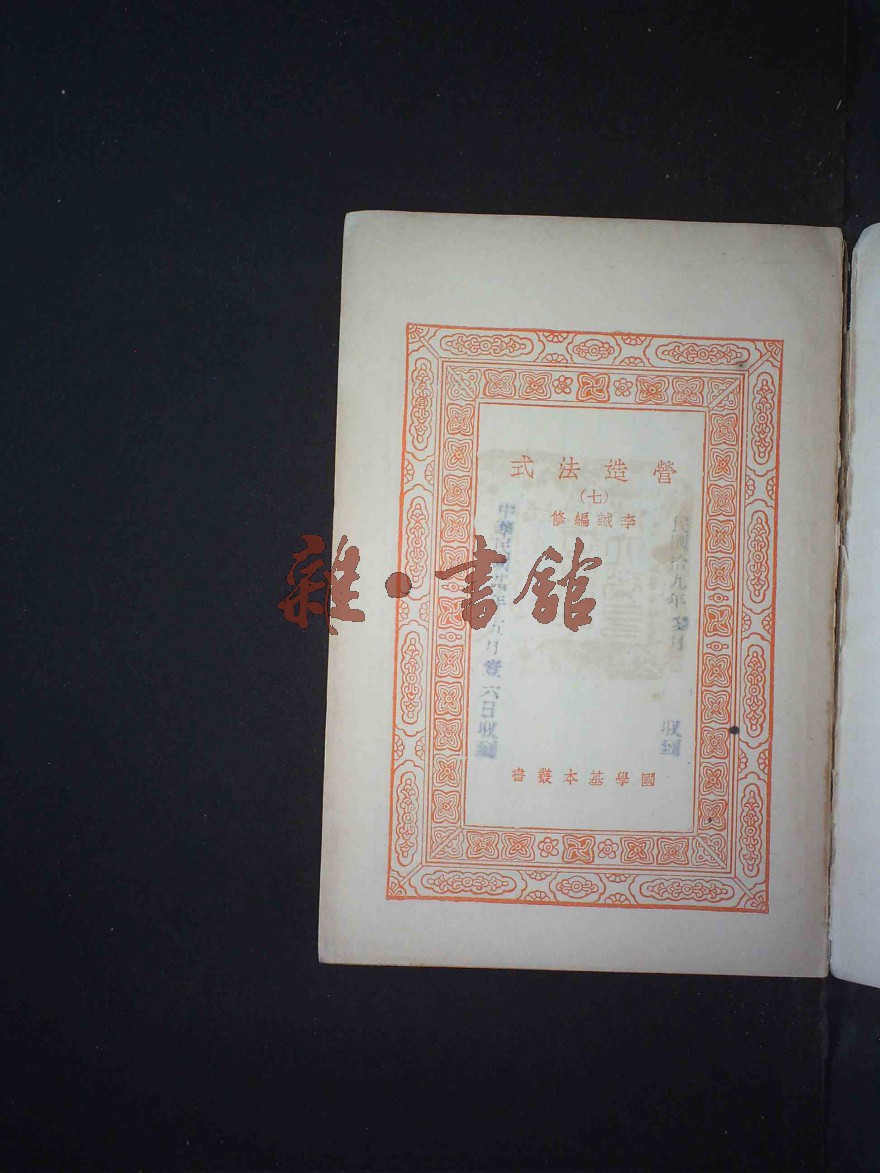 營造法式
(七)
李誡編修
民國拾九年 月
收到
中華民國 年 五月 六日收到
雜·書館
國學基本叢書